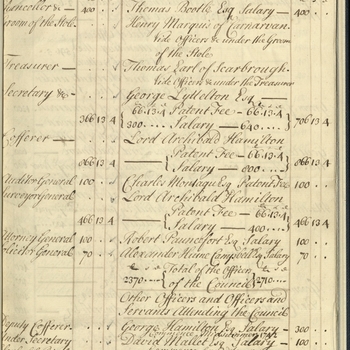 Chancellor & — 400 · · Thomas Bootle Esq. Salary — 400 · ·
Groom of the Stole. Henry Marquis of Carnarvan
Vide Officers &c under the Groom
of the Stole
Treasurer — Thomas Earl of Scarbrough
Vide Officers &c under the Treasurer
Secretary &c George Lyttelton Esq —
366 13 4 { 66.13.4 Patent Fee — 66.13.4 } 706 13 4
300 Salary — 640
Cofferer — Lord Archibald Hamilton
866 13 4 { Patent Fee — 66.13.4 } 866 13 4
Salary — 800
Auditor General 100 · · Charles Montagu Esq Patent Fee 100 · ·
Surveyor General Lord Archibald Hamilton
466 13 4 { Patent Fee — 66.13.4 } 466 13 4
Salary — 400
Attorney General 100 · · Robert Pauncefort Esq Salary 100 · ·
Solicitor General 70 · · Alexander Hume Campbell Esq Salary 70 · ·
Total of the Officers
2370 of the Council 2710
Other Officers and Officers and
Servants Attending the Council
Deputy Cofferer George Hamilton Esq Salary — 300 · ·
Under Secretary David Mallet Esq Salary — 100